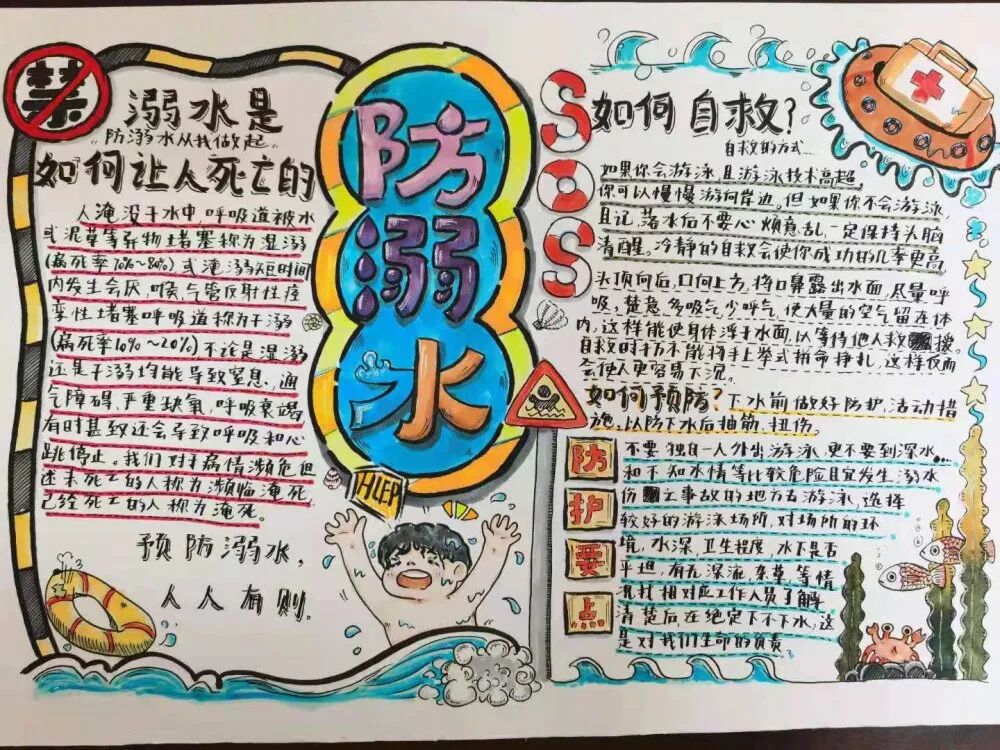 禁
溺水是
防溺水从我做起
如何让人死亡的
人淹没于水中呼吸道被水
或泥草等异物堵塞称为湿溺
(病死率70%~80%)或淹溺短时间
内发生会厌,喉气管反射性痉
挛性堵塞呼吸道称为干溺
(病死率10%~20%)不论是湿溺
还是干溺均能导致窒息、通
气障碍,严重缺氧,呼吸衰竭
有时甚致还会导致呼吸和心
跳停止。我们对于病情濒危但
还未死亡的人称为濒临淹死,
已经死亡的人称为淹死。
预防溺水,
人人有则.
防溺水
HLEP
SOS
如何自救?
自救的方式...
如果你会游泳且游泳技术高超,
你可以慢慢游向岸边。但如果你不会游泳,
且记,落水后不要心烦意乱,一定保持头脑
清醒。冷静的自救会使你成功的几率更高,
头顶向后,口向上方,将口鼻露出水面,尽量呼
吸,楚意多吸气少呼气,使大量的空气留在体
内,这样能使身体浮于水面,以等待他人救援。
自救时扐不能将手上举式拼命挣扎,这样仅而
会使人更容易下沉.
如何预防?下水前做好防护,活动措
施,以防下水后抽筋、扭伤。
防护要点
不要独自一人外出游泳,更不要到深水...
和不知水情等比较危险且宜发生溺水
伤之事故的地方去游泳,选择
较好的游泳场所,对场所的环
境,水深,卫生程度,水下是否
平坦,有无深流,杂草,等情
况找相对应工作人员了解
清楚后在绝定下不下水,这
是对我们生命的负责